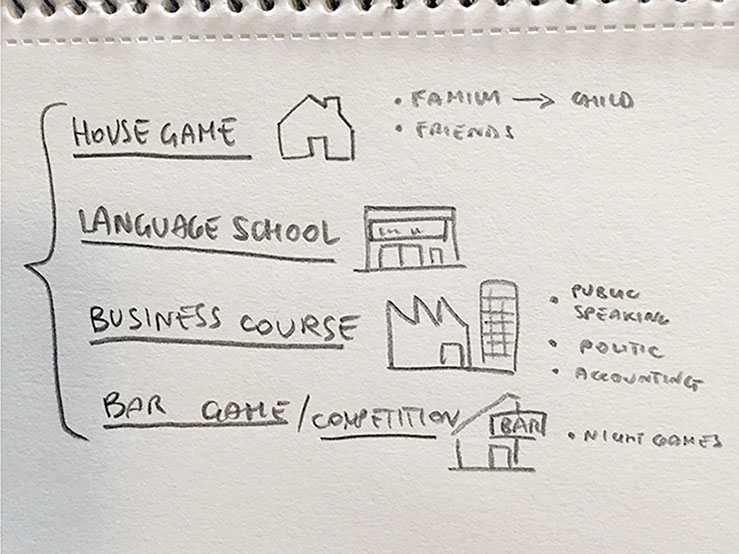 HOUSE GAME
• FAMILY → CHILD
• FRIENDS
LANGUAGE SCHOOL
BUSINESS COURSE
• PUBLIC
SPEAKING
• POLITIC
• ACCOUNTING
BAR GAME / COMPETITION
BAR
• NIGHT GAMES